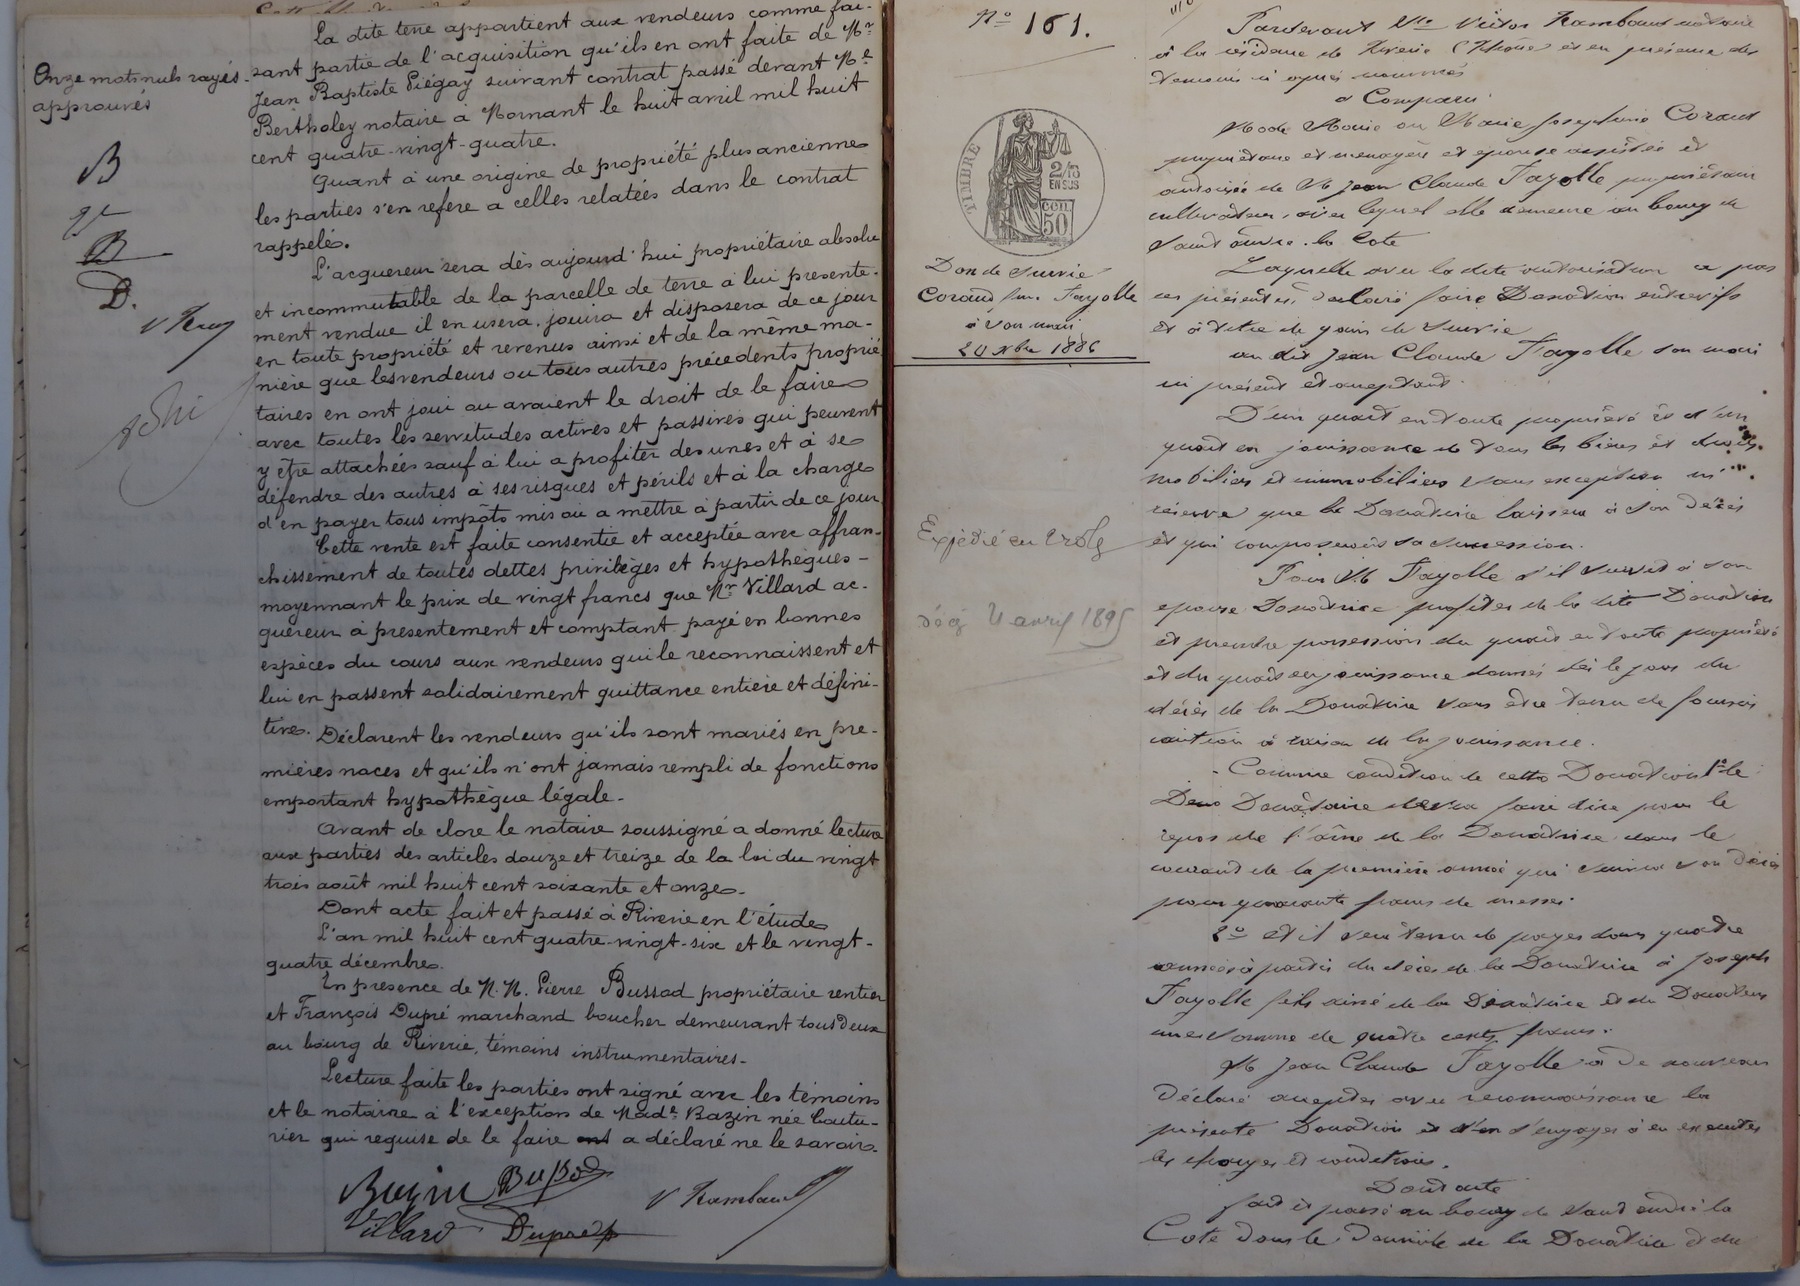 La dite terre appartient aux vendeurs comme fai-
sant partie de l'acquisition qu'ils en ont faite de Mr
Jean Baptiste Piégay suivant contrat passé devant Me
Bertholey notaire à Mornant le huit avril mil huit
cent quatre-vingt-quatre.
Quant à une origine de propriété plus ancienne
les parties s'en refere a celles relatées dans le contrat
rappelé.
L'acquereur sera dès aujourd'hui propriétaire absolu
et incommutable de la parcelle de terre à lui presente-
ment vendue il en usera, jouira et disposera de ce jour
en toute propriété et revenus ainsi et de la même ma-
nière que les vendeurs ou tous autres précedents proprié
taires en ont joui ou avaient le droit de le faire
avec toutes les servitudes actives et passives qui peuvent
y être attachées sauf à lui a profiter des unes et à se
défendre des autres à ses risques et périls et à la charge
d'en payer tous impôts mis ou a mettre à partir de ce jour
Cette vente est faite consentie et acceptée avec affran-
chissement de toutes dettes privilèges et hypothèques -
moyennant le prix de vingt francs que Mr Villard ac-
quereur à presentement et comptant payé en bonnes
espèces du cours aux vendeurs qui le reconnaissent et
lui en passent solidairement quittance entière et défini-
tive.
Déclarent les vendeurs qu'ils sont mariés en pre-
mières noces et qu'ils n'ont jamais rempli de fonctions
emportant hypothèque légale.
Avant de clore le notaire soussigné a donné lecture
aux parties des articles douze et treize de la loi du vingt
trois août mil huit cent soixante et onze.
Dont acte fait et passé à Riverie en l'étude
L'an mil huit cent quatre-vingt-six et le vingt-
quatre décembre.
En presence de M.M. Pierre Bussod propriétaire rentier
et François Dupré marchand boucher demeurant tous deux
au bourg de Riverie, témoins instrumentaires.
Lecture faite les parties ont signé avec les témoins
et le notaire à l'exception de Made Bazin née Coutu-
rier qui requise de le faire ont a déclaré ne le savoir.
Bazin Bussod
V Rambaud
Villard Dupré
Onze mots nuls rayés
approuvés
B
B
D.
No 161.
TIMBRE
2/10
EN SUS
50
CEN.
Don de survie
Coraud femme Fayolle
à son mari
20 Xbre 1886
Expédié en
avril 1895
Pardevant Me Victor Rambaud notaire
à la résidence de Riverie (Rhône) et en présence des
temoins ci après nommés
a Comparu
Made Marie ou Marie Josephine Coraud
propriétaire et menagère et épouse assistée et
autorisée de M Jean Claude Fayolle propriétaire
cultivateur, avec lequel elle demeure au bourg de
Saint André la Cote
Laquelle avec la dite autorisation a par
ces présentes, declaré faire Donation entrevifs
et à titre de gain de survie
au dit Jean Claude Fayolle son mari
ici présent et acceptant.
D'un quart en toute propriété et d'un
quart en jouissance de tous les biens et droits
mobiliers et immobiliers sans exception ni
réserve que la Donatrice laissera à son décès
et qui composeront sa succession.
Pour M Fayolle s'il survit à son
epouse Donatrice profiter de la dite Donation
et prendre possession du quart en toute propriété
et du quart en jouissance donnés dès le jour du
décès de la Donatrice sans etre tenu de fournir
caution à raison de la jouissance.
Comme condition de cette Donation 1o le
Donataire devra faire dire pour le
repos de l'âme de la Donatrice dans le
courant de la première année qui suivra son décès
pour quarante francs de messes.
2o et il sera tenu de payer dans quatre
années à partir du décès de la Donatrice à Joseph
Fayolle fils ainé de la Donatrice et du Donateur
une somme de quatre cents francs.
M Jean Claude Fayolle a de nouveau
Déclaré accepter avec reconnaissance la
présente Donation et s'engager à en executer
les charges et conditions.
Dont acte
fait et passé au bourg de Saint André la
Cote dans le Domicile de la Donatrice et du